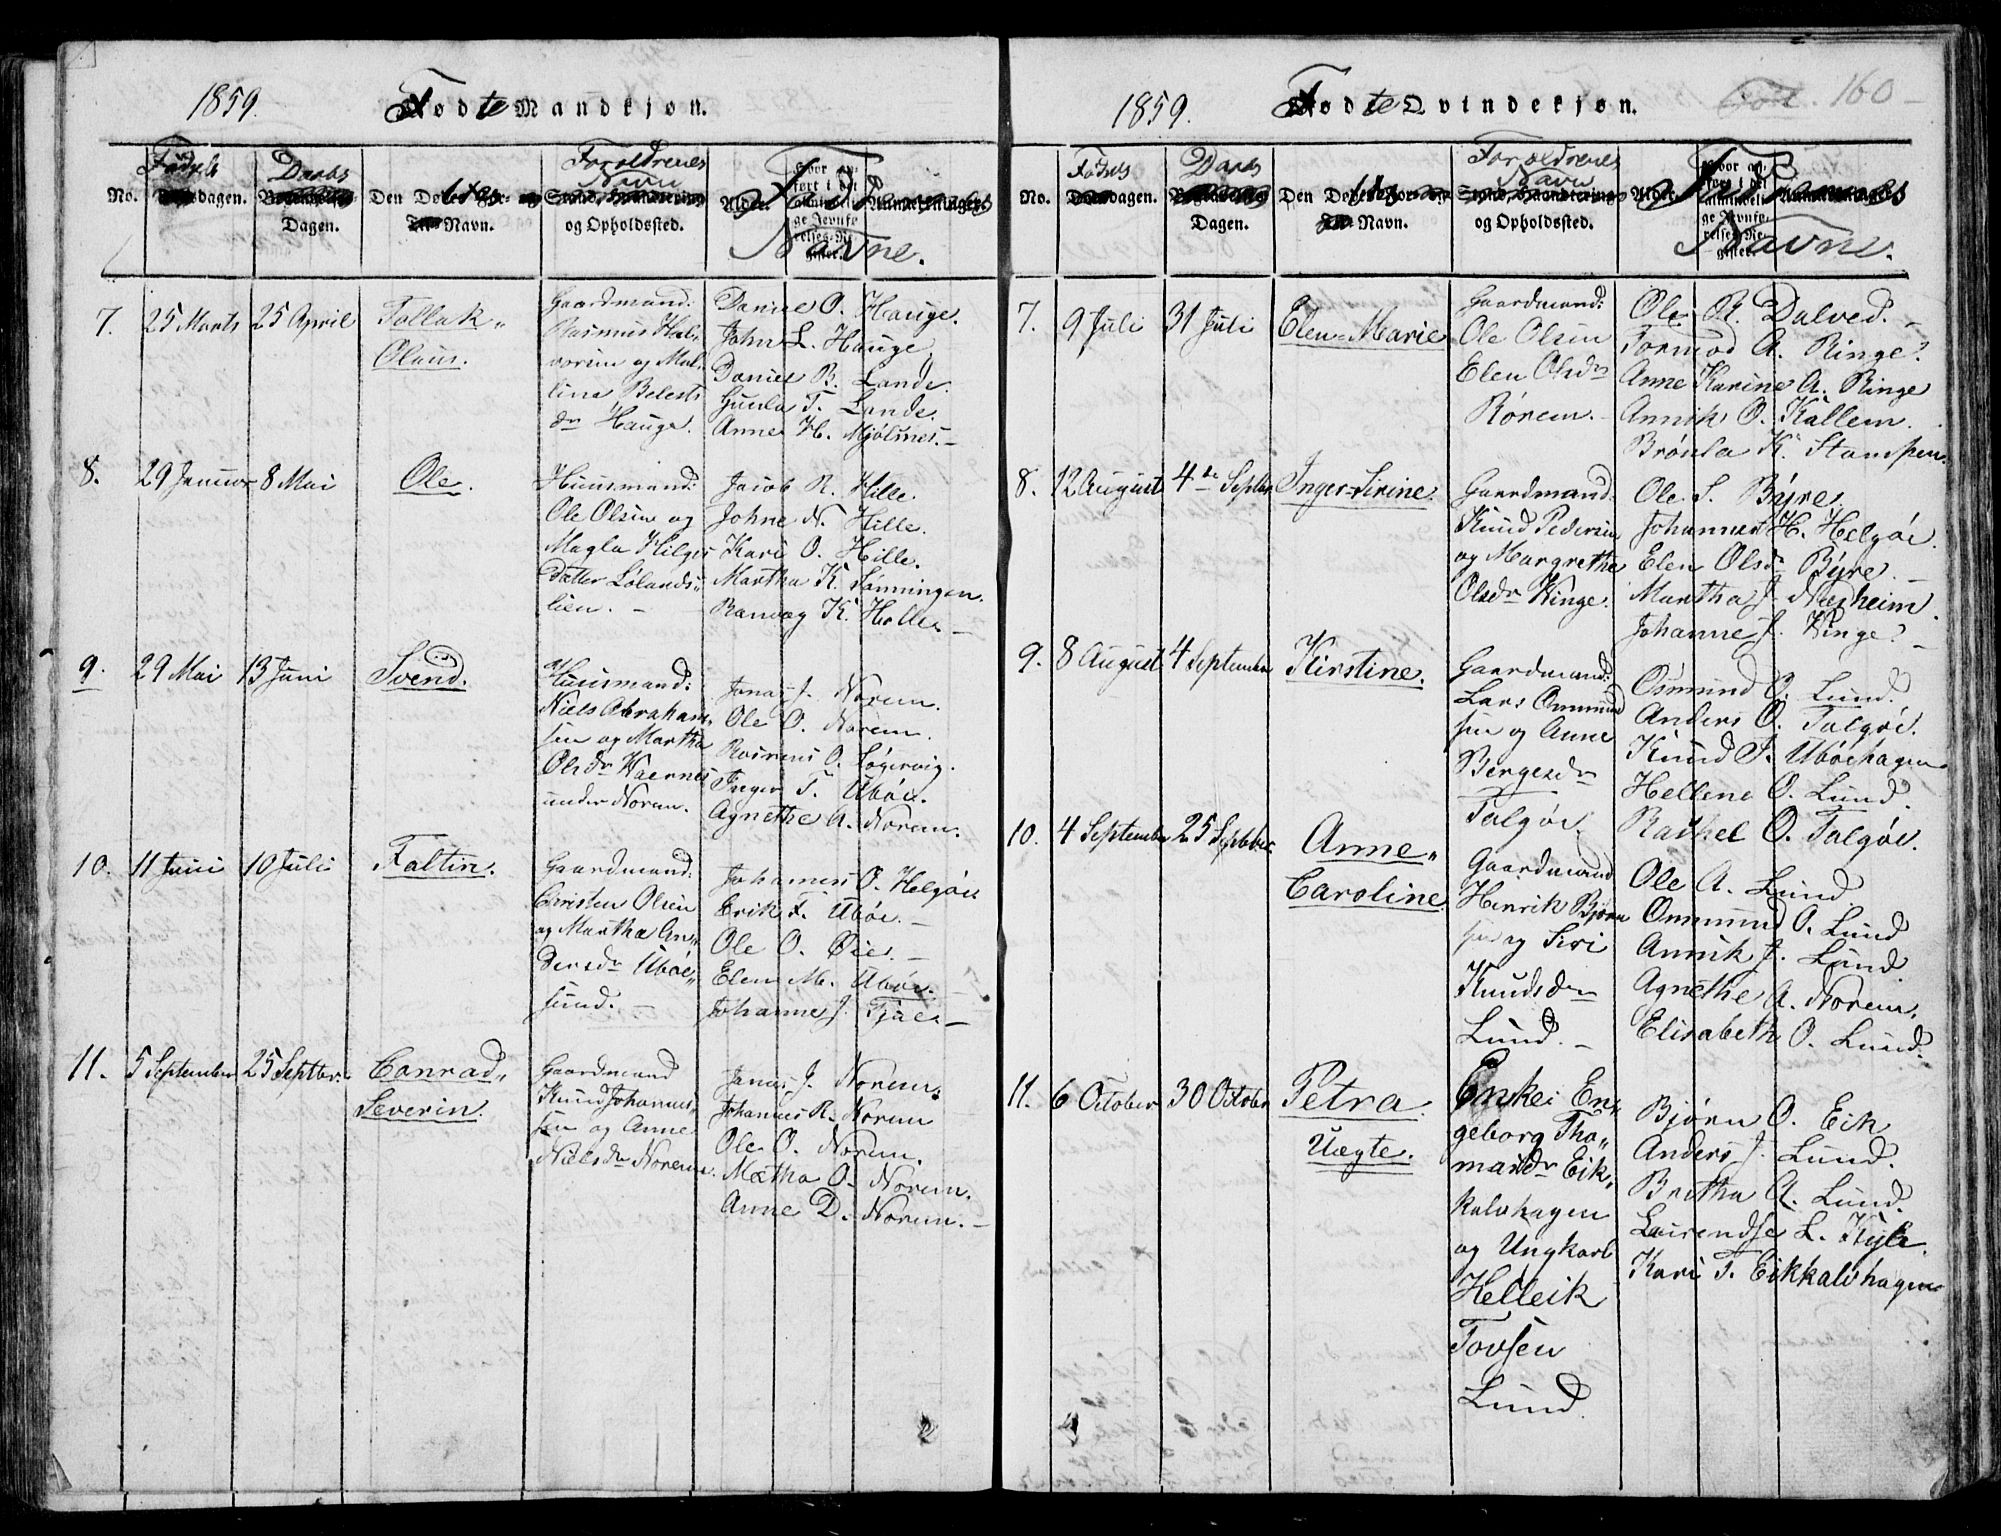 1859.
Fødte Mandkjøn.
No.
Fødsels
dagen.
Daabs
Dagen.
Den Døbtes For-
Navn.
Forældrenes
Navn
og Opholdssted.
Faddernes
Navne.
7. 25 Marts 25 April
Tollak
Olaus.
Gaardmand:
Rasmus Hal-
vorsen og Mal-
lina Belests
dr Hauge.
Daniel O. Hauge.
John L. Hauge
Daniel B. Lande.
Gunla T. Lande.
Anne H. Mjølsnes.
8. 29 Januar 8 Mai
Ole.
Huusmand:
Ole Olsen og
Magla Helges
datter Lølands-
lien.
Jacob R. Hille.
Johne N. Hille.
Kari O. Hille.
Martha K. Lønningen.
Ranveg K. Halle
9. 29 Mai 13 Juni
Svend.
Huusmand:
Niels Abraham-
sen og Martha
Olsdr Waernes
under Norem.
Jonas J. Norem.
Ole O. Norem.
Rasmus O. Løgevig.
Inger T. Ubøe.
Agnethe A. Norem.
10. 11 Juni 10 Juli
Faltin.
Gaardmand:
Christen Olsen
og Martha An-
dersdr Ubøe-
sund.
Johannes O. Helgøe
Erik T. Ubøe.
Ole O. Øie.
Elen M. Ubøe.
Johanne J. Tjæe
11. 5 September 25 Septbr.
Conrad
Severin.
Gaardmand
Knud Johannes-
sen og Anne
Nielsdr Norem.
Jonas J. Norem.
Johannes R. Norem
Ole O. Norem.
Martha O. Norem.
Anne D. Norem.
1859.
Fødte Qvindekjøn.
Fol. 160
No.
Fødsels
dagen.
Daabs
Dagen.
Den Døbtes For-
Navn.
Forældrenes
Navn
og Opholdssted.
Faddernes
Navne.
7. 9 Juli 31 Juli
Elen-Marie
Gaardmand:
Ole Olsen
Elen Olsdr
Rørem.
Ole R. Dalved.
Tormod A. Ringe.
Anne Karine A. Ringe
Annik O. Kallem.
Brønla K. Stampen.
8. 12 August 4de Septbr.
Inger-Sirine.
Gaardmand
Knud Pedersen
og Margrethe
Olsdr Winge.
Ole S. Byre.
Johannes H. Helgøe.
Elen Olsdr Byre.
Martha J. Næsheim.
Johanne J. Winge.
9. 8 August 4 September
Kirstine.
Gaardmand:
Lars Ommund
sen og Anne
Bergesdr
Talgøe.
Osmund O. Lund.
Anders O. Talgøe.
Knud T. Ubøehagen.
Hellene O. Lund.
Rachel O. Talgøe.
10. 4 September 25 Septbr.
Anne
Caroline.
Gaardmand
Henrik Bjørn
sen og Siri
Knudsdr
Lund.
Ole A. Lund
Ommund O. Lund
Annik J. Lund
Agnethe A. Norem.
Elisabeth O. Lund.
11. 6 October 30 October
Petra.
Uægte.
Enke: En-
geborg Tho-
masdr Eik-
kalvhagen
og Ungkarl
Helleik
Tovsen
Lund
Bjørn O. Eik
Anders J. Lund.
Britha A. Lund.
Laurendse L. Kyle.
Kari T. Eikkalvhagen